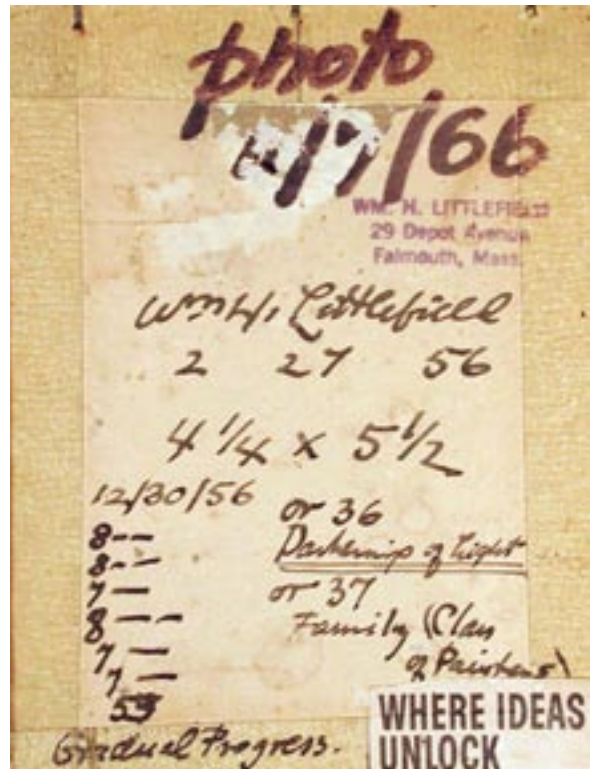 photo
/7/66
WM. H. LITTLEFIELD
29 Depot Avenue
Falmouth, Mass.
Wm H. Littlefield
2 27 56
4 1/4 x 5 1/2
12/30/56
or 36
8--
of Light
8--
7—
or 37
8--
Family (Clan
7—
of Painters)
7—
Gradual Progress.
WHERE IDEAS
UNLOCK